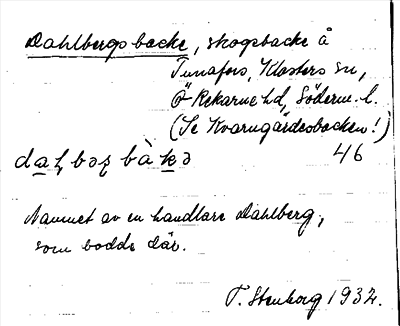 Dahlbergs backe, skogsbacke å
Tunafors, Klosters sn,
Ö-Rekarne hd, Söderm. l.
(Se Kvarngärdesbacken!)
46
Namnet av en handlare Dahlberg,
som bodde där.
T. Stenborg 1932.